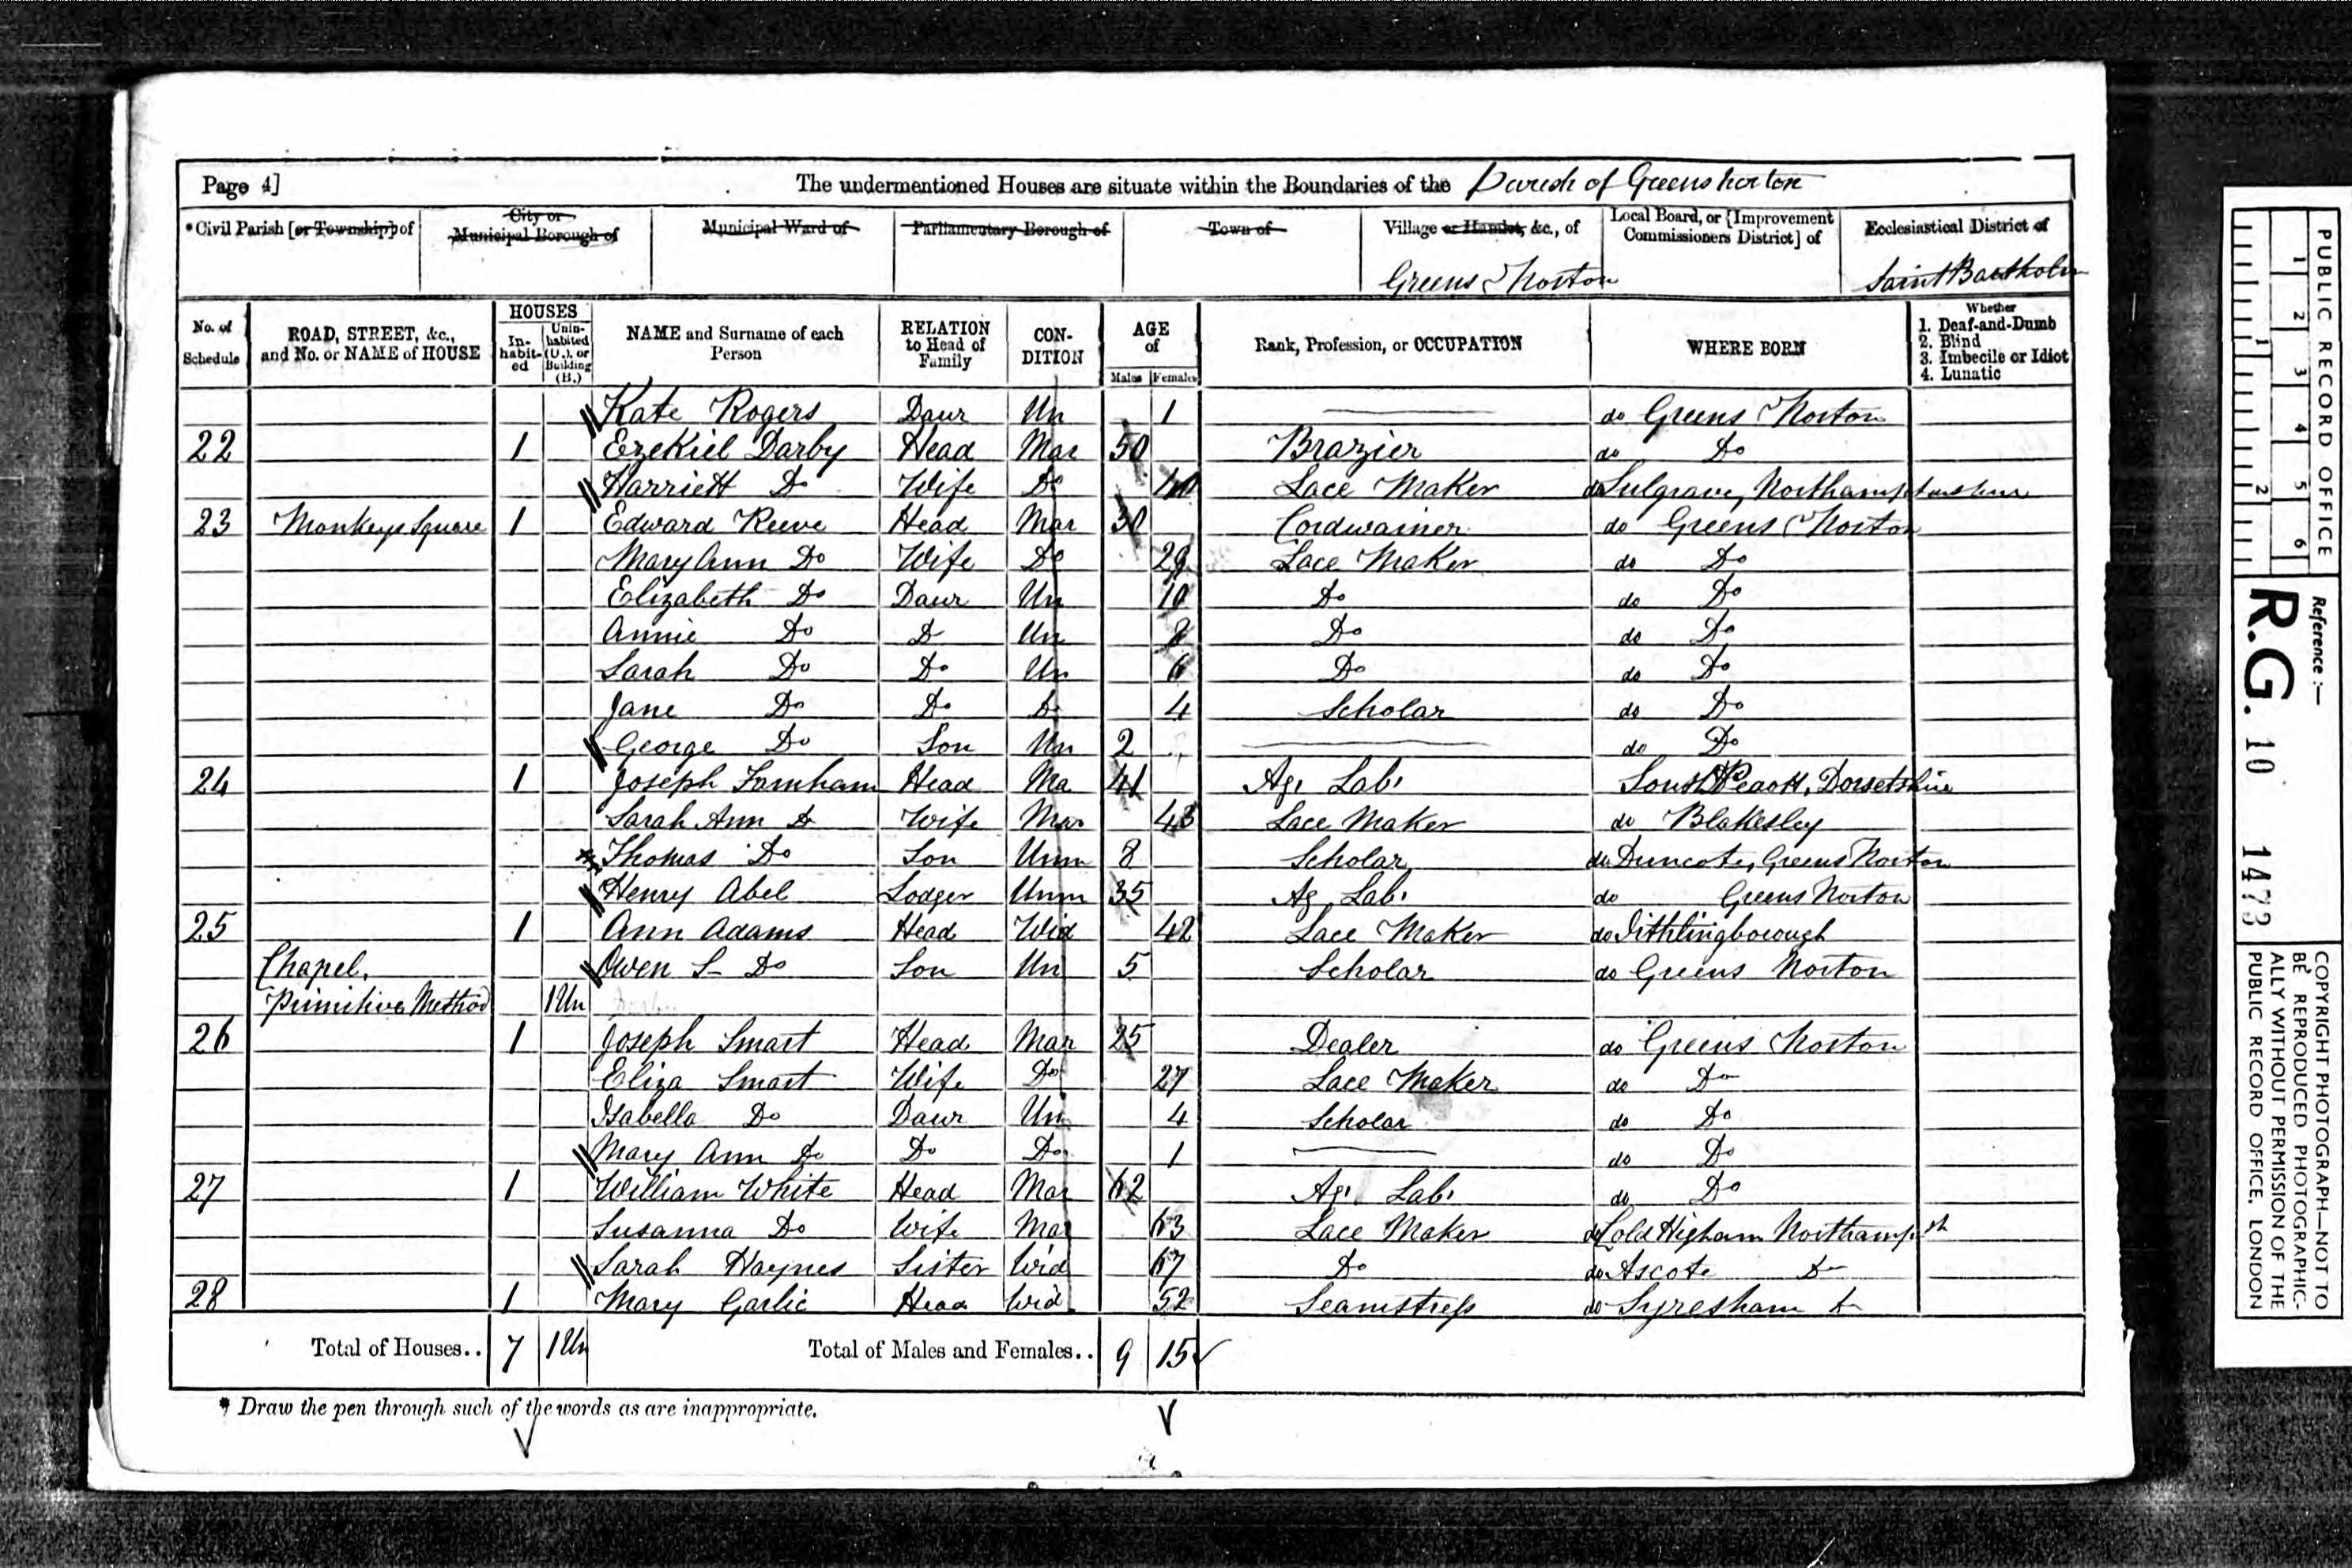 Page 4] The undermentioned Houses are situate within the Boundaries of the Parish of Greens Norton
*Civil Parish [or Township] of City or Municipal Borough of Municipal Ward of Parliamentary Borough of Town of Village or Hamlet, &c., of Local Board, or [Improvement Commissioners District] of Ecclesiastical District of
Greens Norton Saint Bartholm
No. of Schedule ROAD, STREET, &c., and No. or NAME of HOUSE HOUSES In-habit-ed Unin-habited (U.), or Building (B.) NAME and Surname of each Person RELATION to Head of Family CON-DITION AGE of Males Females Rank, Profession, or OCCUPATION WHERE BORN Whether 1. Deaf-and-Dumb 2. Blind 3. Imbecile or Idiot 4. Lunatic
Kate Rogers Daur Un 1 do Greens Norton
22 1 Ezekiel Darby Head Mar 50 Brazier do Do
Harriett Do Wife Do 40 Lace Maker do Sulgrave, Northamptonshire
23 Monkeys Square 1 Edward Reeve Head Mar 30 Cordwainer do Greens Norton
Mary Ann Do Wife Do 29 Lace Maker do Do
Elizabeth Do Daur Un 10 Do do Do
Annie Do D Un 8 Do do Do
Sarah Do Do Un 6 Do do Do
Jane Do Do Do 4 Scholar do Do
George Do Son Un 2 do Do
24 1 Joseph Farnham Head Ma 41 Ag. Lab. South Dorsetshire
Sarah Ann Do Wife Mar 43 Lace Maker do Blakesley
Thomas Do Son Unm 8 Scholar do Duncote, Greens Norton
Henry Abel Lodger Unm 35 Ag. Lab. do Greens Norton
25 1 Ann Adams Head Wid 42 Lace Maker do Irthlingborough
Chapel. Owen S Do Son Un 5 Scholar do Greens Norton
Primitive Method 1 Un
26 1 Joseph Smart Head Mar 25 Dealer do Greens Norton
Eliza Smart Wife Do 27 Lace Maker do Do
Isabella Do Daur Un 4 Scholar do Do
Mary Ann Do Do Do 1 do Do
27 1 William White Head Mar 62 Ag. Lab. do Do
Susanna Do Wife Mar 63 Lace Maker do Cold Higham Northampsh
Sarah Haynes Sister Wid 67 Do do Ascote Do
28 1 Mary Garlic Head Wid 52 Seamstress do Syresham Do
Total of Houses.. 7 1 Un Total of Males and Females.. 9 15
* Draw the pen through such of the words as are inappropriate.
PUBLIC RECORD OFFICE
1 2 3 4 5 6
1 2
Reference :—
R.G. 10 1473
COPYRIGHT PHOTOGRAPH—NOT TO
BE REPRODUCED PHOTOGRAPHIC-
ALLY WITHOUT PERMISSION OF THE
PUBLIC RECORD OFFICE, LONDON